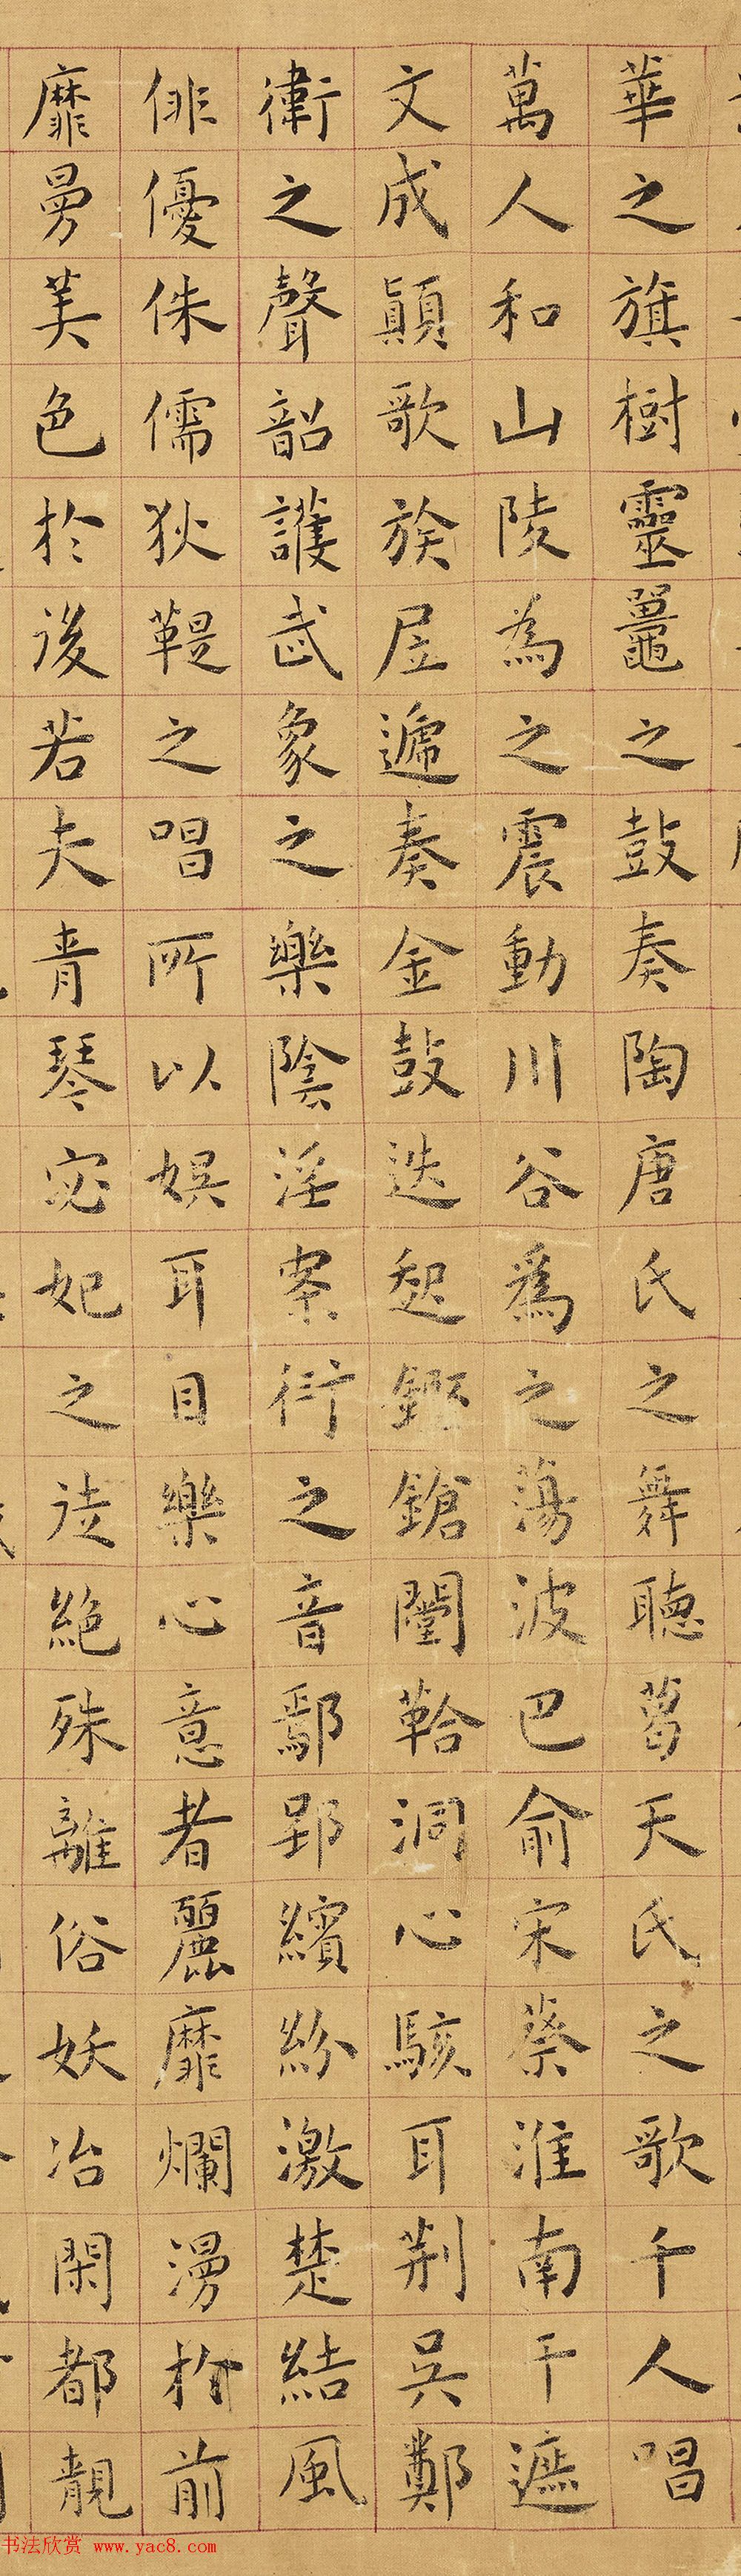 華之旗樹靈鼉之鼓奏陶唐氏之舞聽葛天氏之歌千人唱
萬人和山陵為之震動川谷爲之蕩波巴俞宋蔡淮南干遮
文成顛歌族居遞奏金鼓迭起鏗鎗闛鞈洞心駭耳荆吳鄭
衛之聲韶護武象之樂陰淫案衍之音鄢郢繽紛激楚結風
俳優侏儒狄鞮之唱所以娛耳目樂心意者麗靡爛漫於前
靡曼美色於後若夫青琴宓妃之徒絕殊離俗妖冶閑都靚
书法欣赏 www.yac8.com